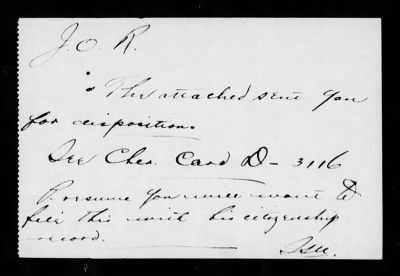 J. O. R.
: The attached sent you
for disposition.
See Cher. Card D - 3116
Presume you will want to
file this with his citizenship
record.